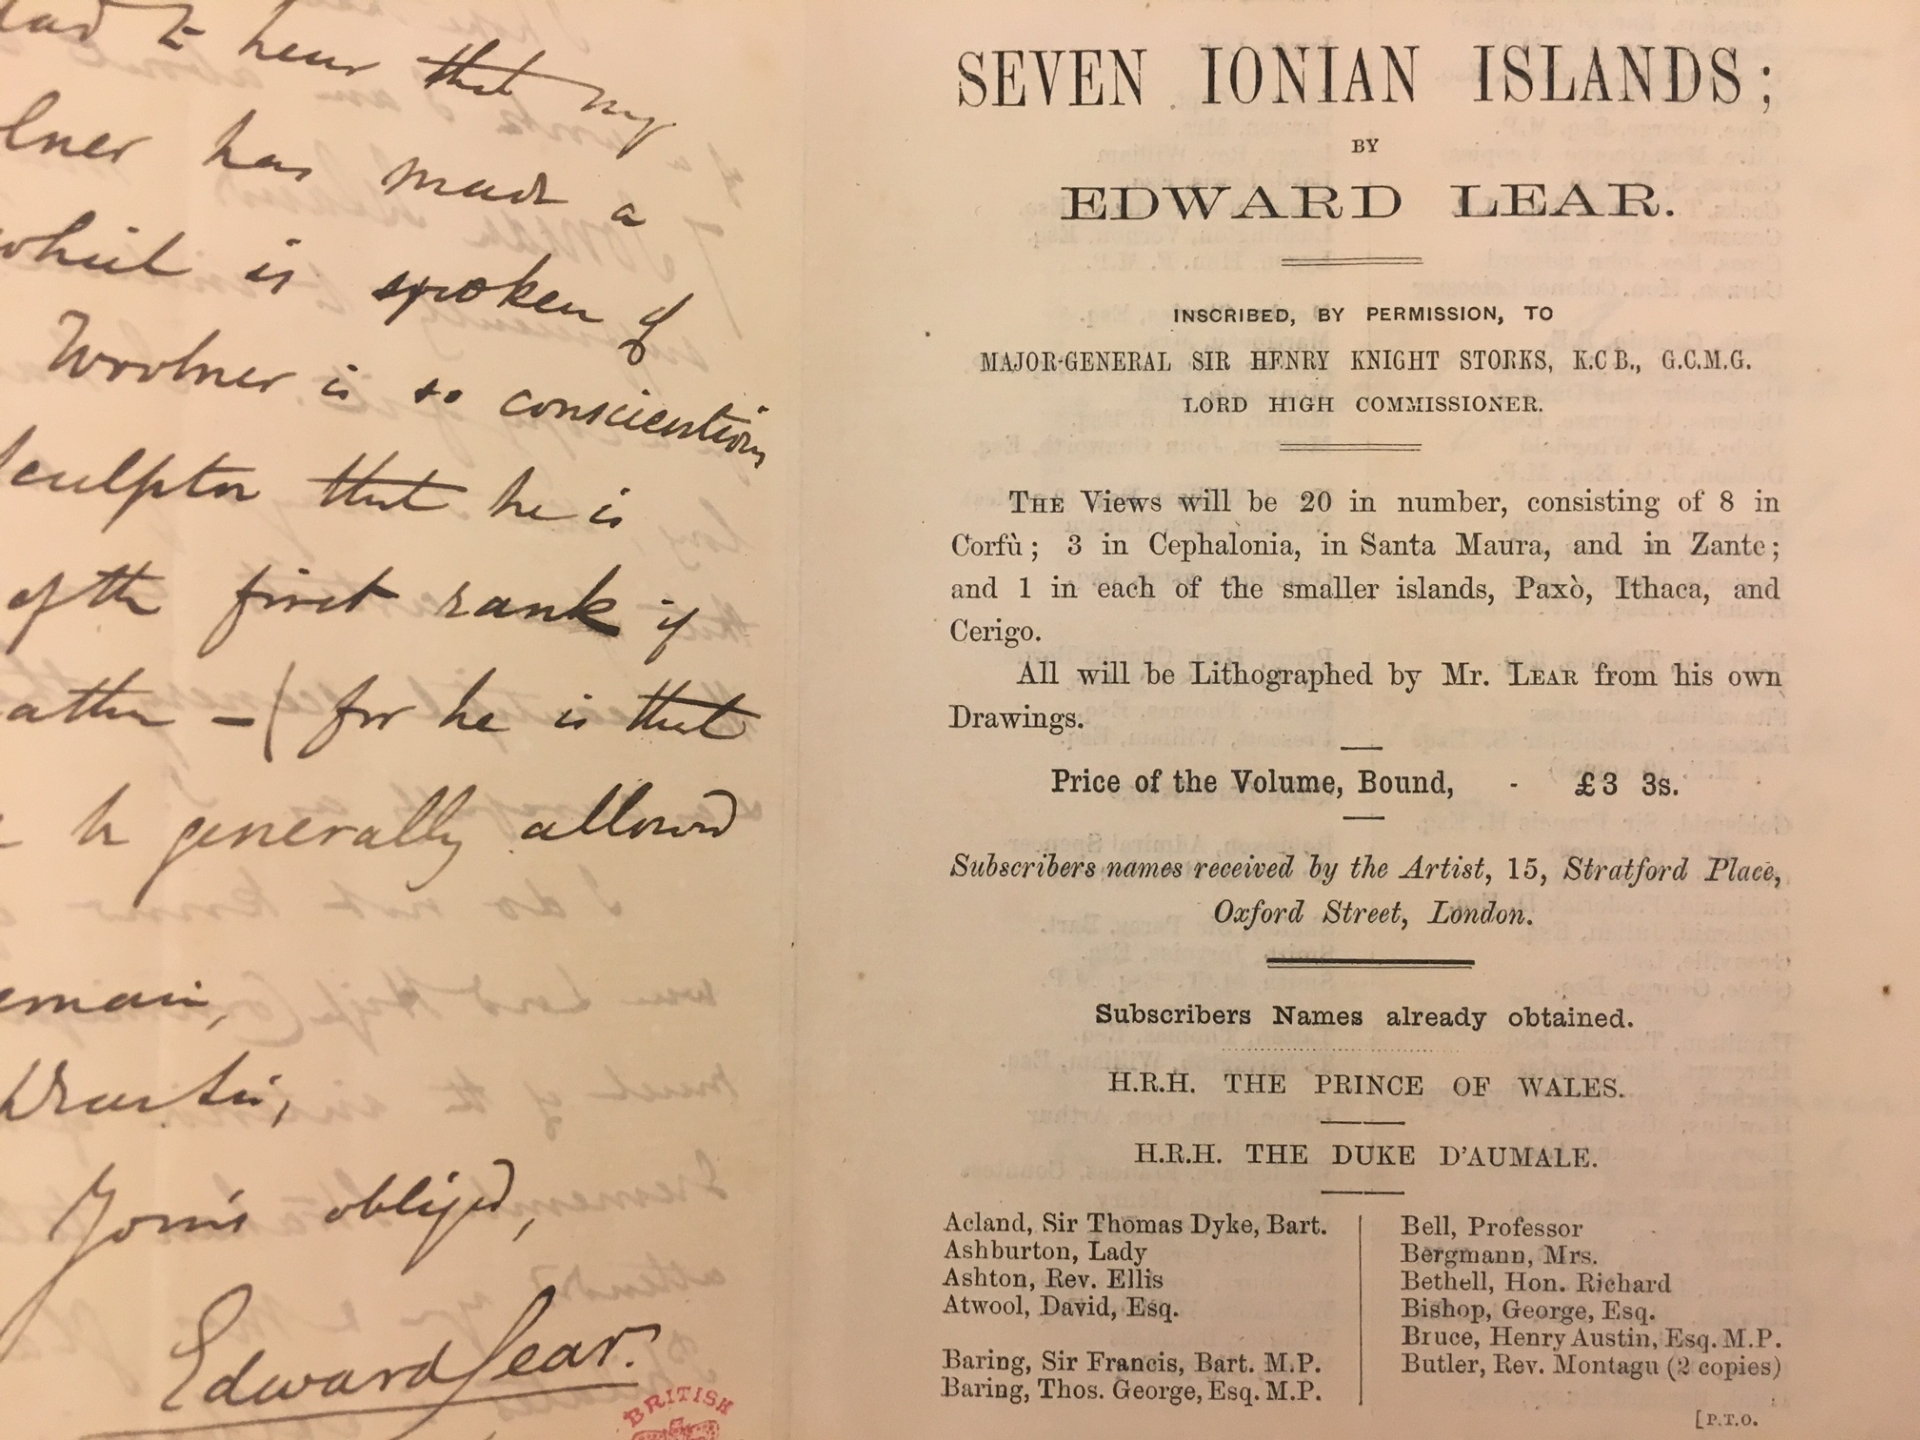 to hear that my
has made a
is spoken of
Woolner is so conscientious
sculptor that he is
of the first rank if
– (for he is that
generally allowed
remain,
Yours obliged,
Edward Lear.
BRITISH
SEVEN IONIAN ISLANDS;
BY
EDWARD LEAR.
INSCRIBED, BY PERMISSION, TO
MAJOR-GENERAL SIR HENRY KNIGHT STORKS, K.C B., G.C.M.G.
LORD HIGH COMMISSIONER.
THE Views will be 20 in number, consisting of 8 in
Corfù; 3 in Cephalonia, in Santa Maura, and in Zante;
and 1 in each of the smaller islands, Paxò, Ithaca, and
Cerigo.
All will be Lithographed by Mr. LEAR from his own
Drawings.
Price of the Volume, Bound, - £3 3s.
Subscribers names received by the Artist, 15, Stratford Place,
Oxford Street, London.
Subscribers Names already obtained.
H.R.H. THE PRINCE OF WALES.
H.R.H. THE DUKE D'AUMALE.
Acland, Sir Thomas Dyke, Bart.
Ashburton, Lady
Ashton, Rev. Ellis
Atwool, David, Esq.
Baring, Sir Francis, Bart. M.P.
Baring, Thos. George, Esq. M.P.
Bell, Professor
Bergmann, Mrs.
Bethell, Hon. Richard
Bishop, George, Esq.
Bruce, Henry Austin, Esq. M.P.
Butler, Rev. Montagu (2 copies)
[P.T.O.